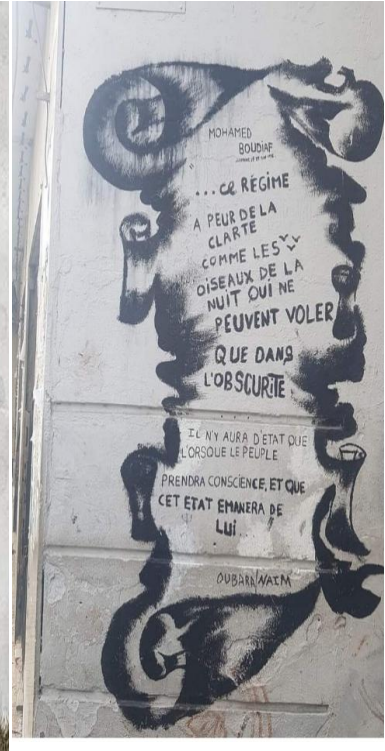 MOHAMED
BOUDIAF
...CE RÉGIME
A PEUR DE LA
CLARTE
COMME LES
OISEAUX DE LA
NUIT QUI NE
PEUVENT VOLER
QUE DANS
L'OBSCURITE
IL N'Y AURA D'ETAT QUE
L'ORSQUE LE PEUPLE
PRENDRA CONSCIENCE, ET QUE
CET ETAT EMANERA DE
LUI...
OUBARA NAIM